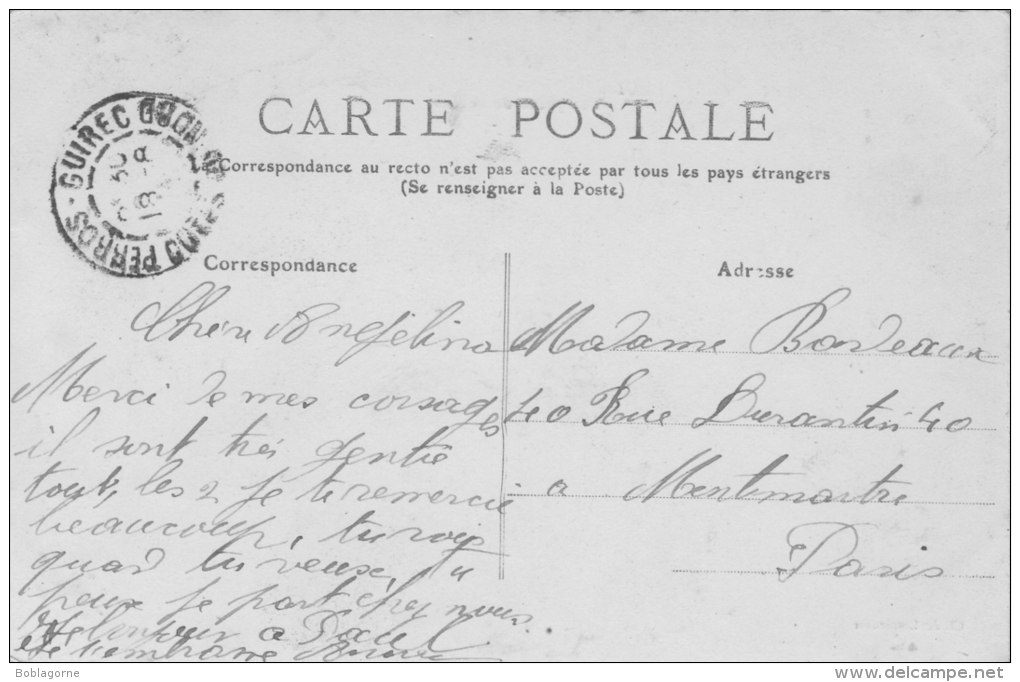 CARTE POSTALE
La Correspondance au recto n'est pas acceptée par tous les pays étrangers
(Se renseigner à la Poste)
PERROS-GUIREC COTES DU NORD
Correspondance
Chère Angélina
Merci de mes corsages
il sont très gentie
tout, les 2 Je te remercie
beaucoup, tu vois
quad tu veuse, tu
peux Je part chez nous.
bonjour a
Adresse
Madame Bordeaux
40 Rue Durantin 40
a Montmartre
Paris
Boblagorne
www.delcampe.net